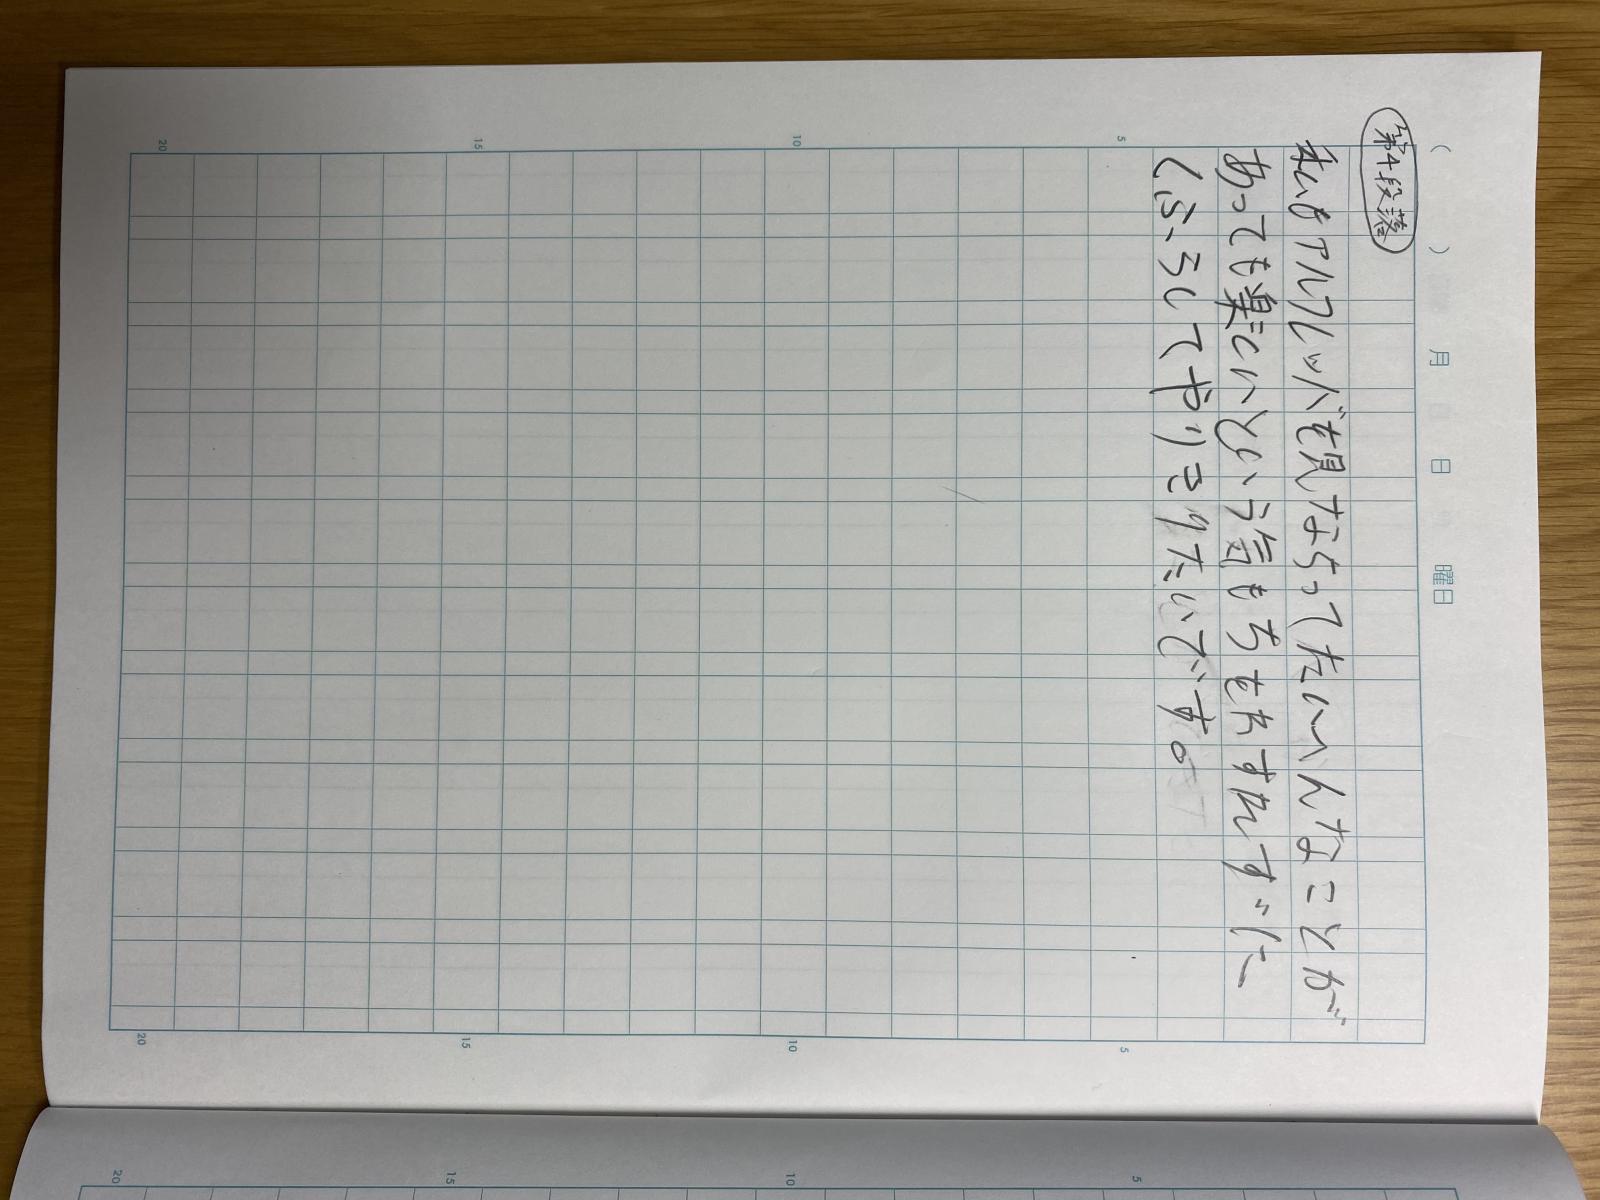 （　）月　日　曜日
第4段落
私もアルフレッドを見ならってたいへんなことが
あっても楽しいという気もちをわすれずに
くふうしてやりきりたいです。
5
10
15
20
5
10
15
20
5
10
15
20